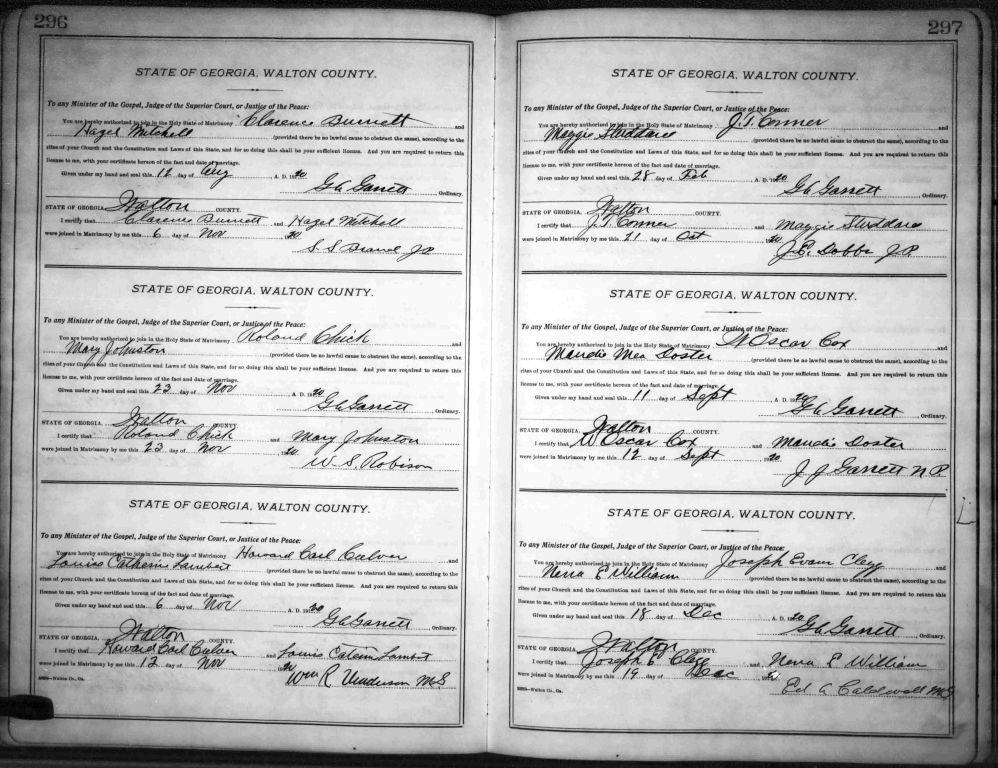 296
STATE OF GEORGIA, WALTON COUNTY.
To any Minister of the Gospel, Judge of the Superior Court, or Justice of the Peace:
You are hereby authorized to join in the Holy State of Matrimony Clarence Burnett and
Hazel Mitchell (provided there be no lawful cause to obstruct the same), according to the
rites of your Church and the Constitution and Laws of this State, and for so doing this shall be your sufficient license. And you are required to return this
license to me, with your certificate hereon of the fact and date of marriage.
Given under my hand and seal this 12 day of Aug A. D. 1920
G A Garrett Ordinary.
STATE OF GEORGIA, Walton COUNTY.
I certify that Clarence Burnett and Hazel Mitchell
were joined in Matrimony by me this 6 day of Nov 1920
S. S. Brand JP
STATE OF GEORGIA, WALTON COUNTY.
To any Minister of the Gospel, Judge of the Superior Court, or Justice of the Peace:
You are hereby authorized to join in the Holy State of Matrimony Roland Chick and
Mary Johnston (provided there be no lawful cause to obstruct the same), according to the
rites of your Church and the Constitution and Laws of this State, and for so doing this shall be your sufficient license. And you are required to return this
license to me, with your certificate hereon of the fact and date of marriage.
Given under my hand and seal this 23 day of Nov A. D. 1920
G A Garrett Ordinary.
STATE OF GEORGIA, Walton COUNTY.
I certify that Roland Chick and Mary Johnston
were joined in Matrimony by me this 23 day of Nov 1920
W. S. Robison
STATE OF GEORGIA, WALTON COUNTY.
To any Minister of the Gospel, Judge of the Superior Court, or Justice of the Peace:
You are hereby authorized to join in the Holy State of Matrimony Howard Carl Culver and
Louise Catherine Lambert (provided there be no lawful cause to obstruct the same), according to the
rites of your Church and the Constitution and Laws of this State, and for so doing this shall be your sufficient license. And you are required to return this
license to me, with your certificate hereon of the fact and date of marriage.
Given under my hand and seal this 6 day of Nov A. D. 1920
G A Garrett Ordinary.
STATE OF GEORGIA, Walton COUNTY.
I certify that Howard Carl Culver and Lambert
were joined in Matrimony by me this 12 day of Nov 1920
Wm R M.G.
Walton Co., Ga.
297
STATE OF GEORGIA, WALTON COUNTY.
To any Minister of the Gospel, Judge of the Superior Court, or Justice of the Peace:
You are hereby authorized to join in the Holy State of Matrimony J. T. Conner and
Maggie Studdard (provided there be no lawful cause to obstruct the same), according to the
rites of your Church and the Constitution and Laws of this State, and for so doing this shall be your sufficient license. And you are required to return this
license to me, with your certificate hereon of the fact and date of marriage.
Given under my hand and seal this 28 day of Feb A. D. 1920
G A Garrett Ordinary.
STATE OF GEORGIA, Walton COUNTY.
I certify that J. T. Conner and Maggie Studdard
were joined in Matrimony by me this 21 day of Oct 1920
J. E. Dobbs J P
STATE OF GEORGIA, WALTON COUNTY.
To any Minister of the Gospel, Judge of the Superior Court, or Justice of the Peace:
You are hereby authorized to join in the Holy State of Matrimony W Oscar Cox and
Maudie Mea Doster (provided there be no lawful cause to obstruct the same), according to the
rites of your Church and the Constitution and Laws of this State, and for so doing this shall be your sufficient license. And you are required to return this
license to me, with your certificate hereon of the fact and date of marriage.
Given under my hand and seal this 11 day of Sept A. D. 1920
G A Garrett Ordinary.
STATE OF GEORGIA, Walton COUNTY.
I certify that W Oscar Cox and Maudie Doster
were joined in Matrimony by me this 12 day of Sept 1920
J J Garrett N P
STATE OF GEORGIA, WALTON COUNTY.
To any Minister of the Gospel, Judge of the Superior Court, or Justice of the Peace:
You are hereby authorized to join in the Holy State of Matrimony Joseph Evam Clegg and
Nena E William (provided there be no lawful cause to obstruct the same), according to the
rites of your Church and the Constitution and Laws of this State, and for so doing this shall be your sufficient license. And you are required to return this
license to me, with your certificate hereon of the fact and date of marriage.
Given under my hand and seal this 18 day of Dec A. D. 1920
G A Garrett Ordinary.
STATE OF GEORGIA, Walton COUNTY.
I certify that Joseph E Clegg and Nena E William
were joined in Matrimony by me this 19 day of Dec
Ed A Caldwell M.G
Walton Co., Ga.